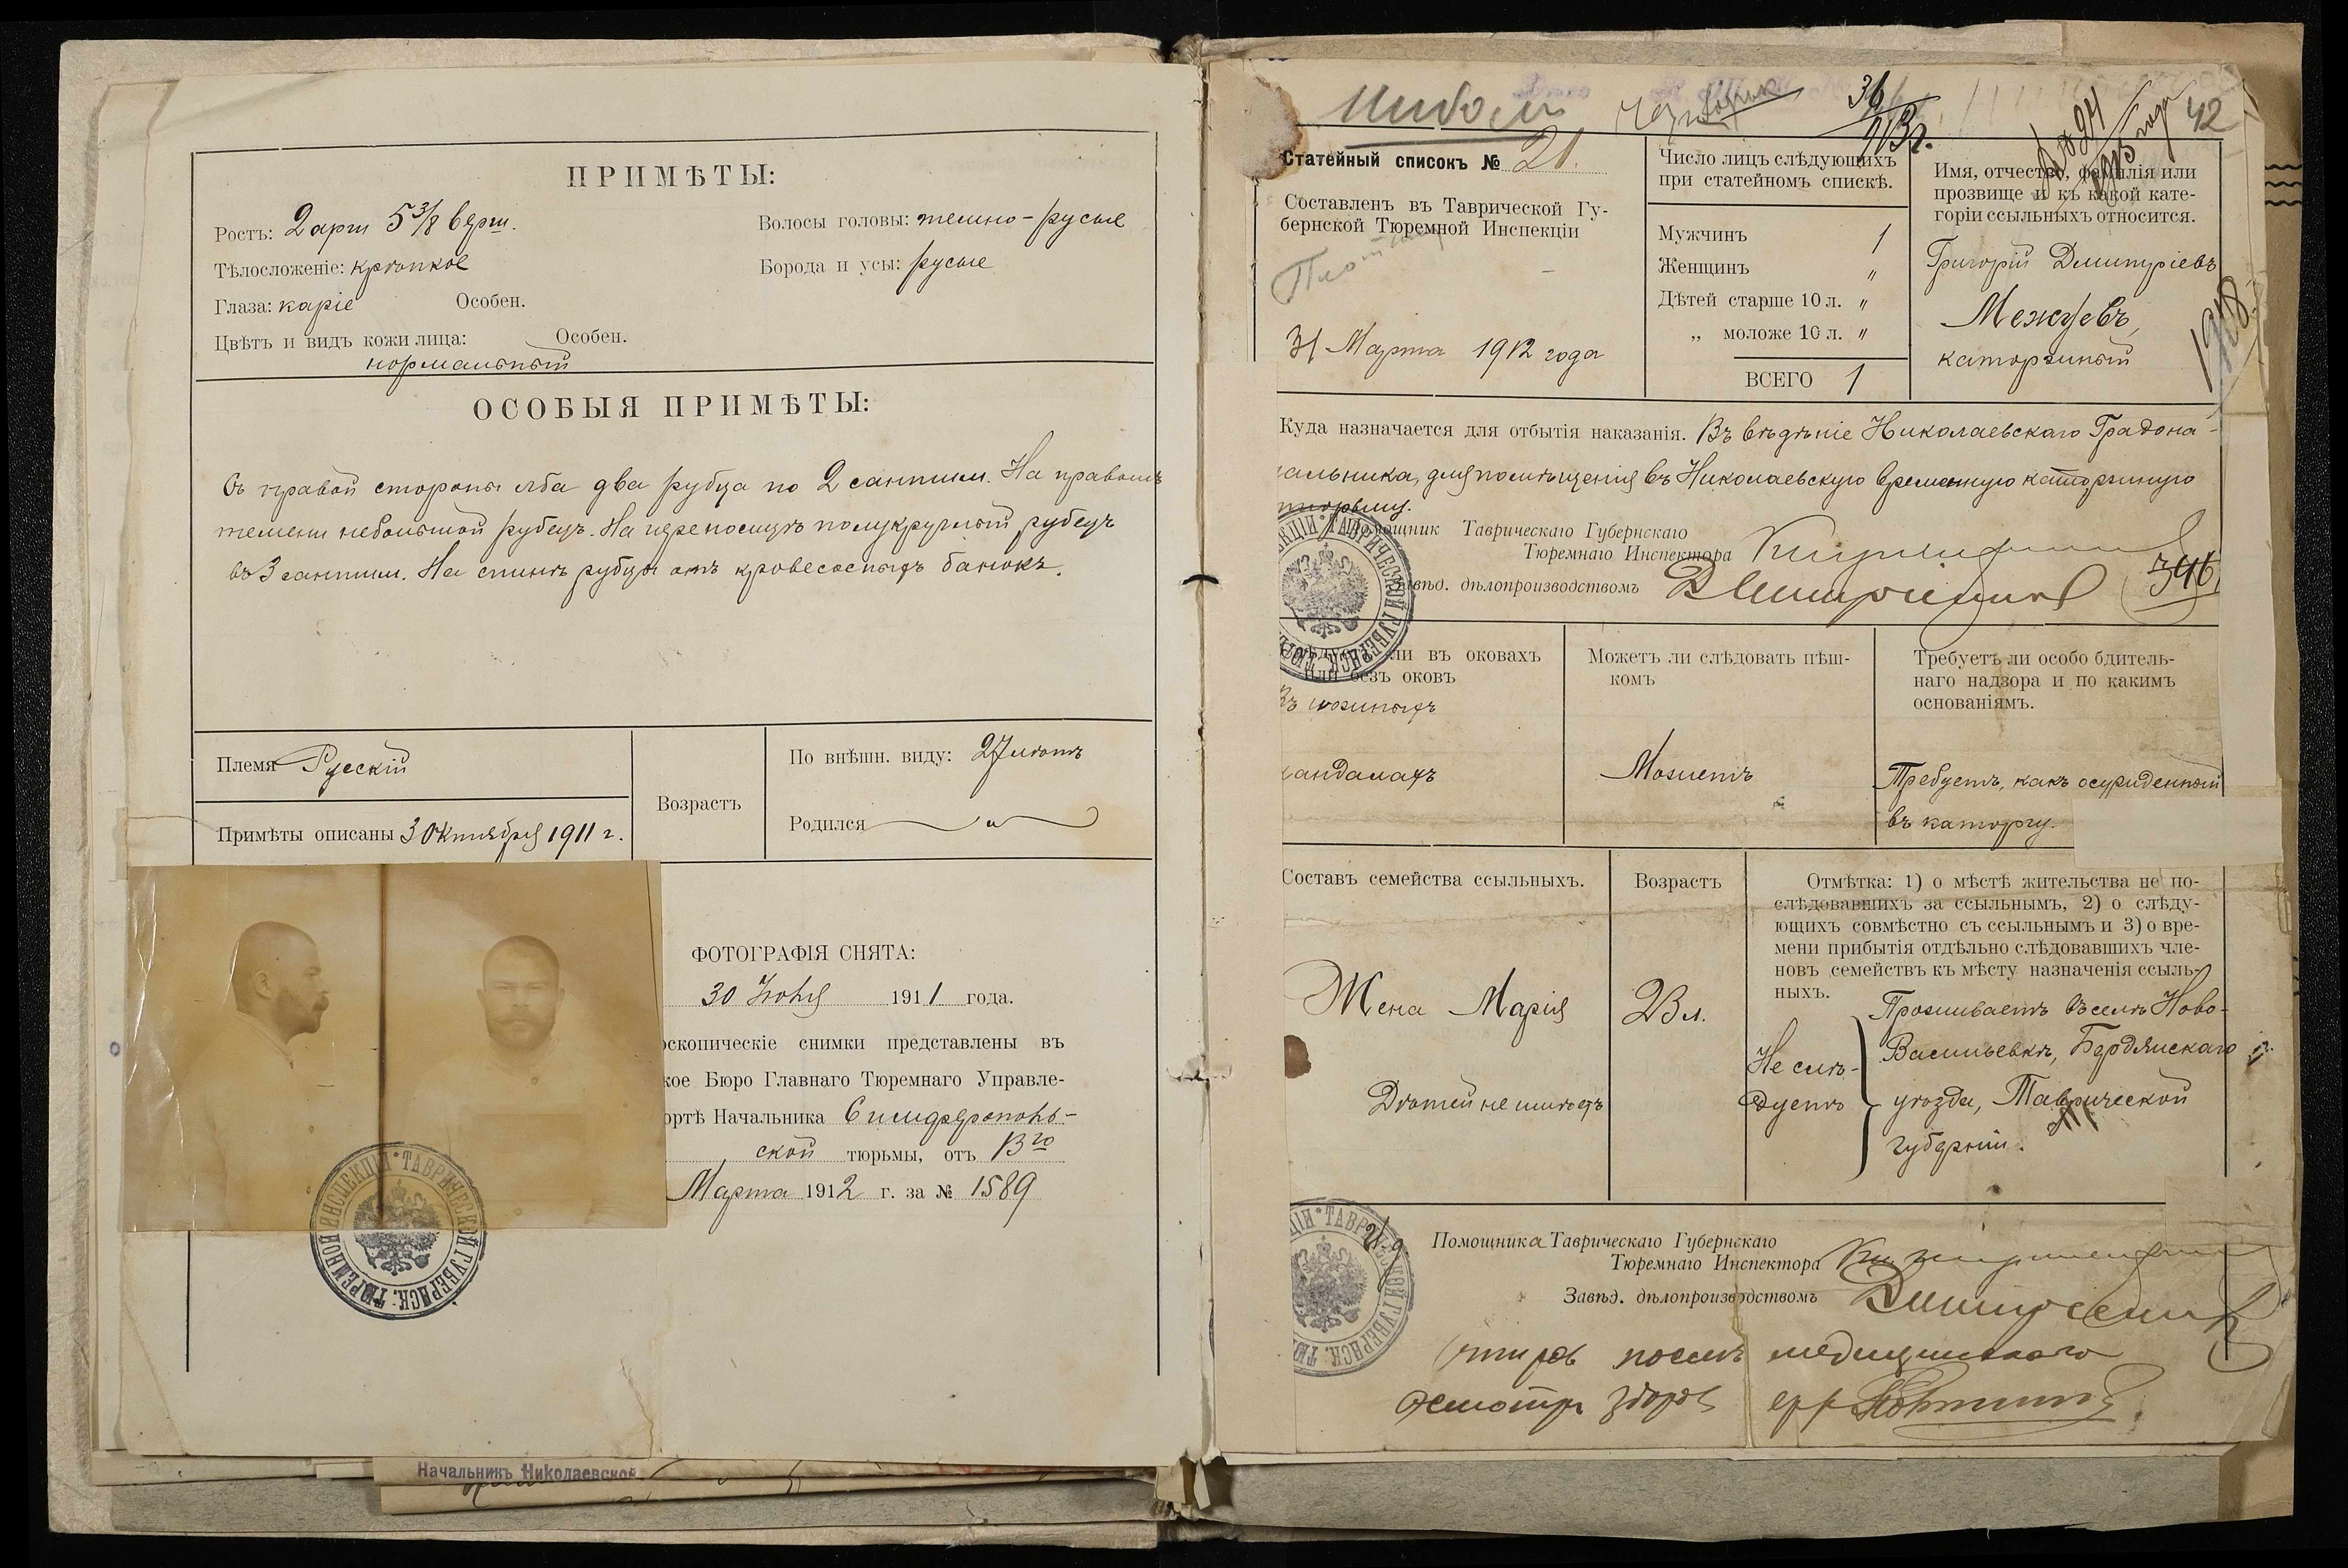 ПРИМѢТЫ:
Ростъ: 2 арш 5 3/8 верш.
Волосы головы: темно-русые
Тѣлосложеніе: крѣпкое
Борода и усы: русые
Глаза: каріе Особен.
Цвѣтъ и видъ кожи лица: Особен.
нормальный
ОСОБЫЯ ПРИМѢТЫ:
Съ правой стороны лба два рубца по 2 сантим. На правомъ
темени небольшой рубецъ. На переносицѣ полукруглый рубецъ
въ 3 сантим. На спинѣ рубцы отъ кровесосныхъ банокъ.
Племя Русскій
Примѣты описаны 3 Октября 1911 г.
Возрастъ
По внѣшн. виду: 27 лѣтъ
Родился „
ФОТОГРАФІЯ СНЯТА:
30 Іюня 1911 года.
оскопическіе снимки представлены въ
кое Бюро Главнаго Тюремнаго Управле-
ортѣ Начальника Симферополь-
ской тюрьмы, отъ 13го
Марта 1912 г. за № 1589
ТАВРИЧЕСКОЙ ГУБЕРНСК. ТЮРЕМНОЙ ИНСПЕКЦІИ
Начальникъ Николаевской
36
1913 г.
№ 24
1915 года
42
Статейный списокъ № 21.
Составленъ въ Таврической Гу-
бернской Тюремной Инспекціи
31 Марта 1912 года
Число лицъ слѣдующихъ
при статейномъ спискѣ.
Мужчинъ 1
Женщинъ „
Дѣтей старше 10 л. „
„ моложе 10 л. „
ВСЕГО 1
Имя, отчество, фамилія или
прозвище и къ какой кате-
горіи ссыльныхъ относится.
Григорій Дмитріевъ
Межуевъ,
каторжный
Куда назначается для отбытія наказанія. Въ вѣдѣніе Николаевскаго Градона-
чальника, для помѣщенія въ Николаевскую временную каторжную
тюрьму.
Помощник Таврическаго Губернскаго
Тюремнаго Инспектора
Завѣд. дѣлопроизводствомъ
346
ТАВРИЧЕСКОЙ ГУБЕРНСК. ТЮР
ли въ оковахъ
или безъ оковъ
Въ ножныхъ
кандалахъ
Можетъ ли слѣдовать пѣш-
комъ
Можетъ
Требуетъ ли особо бдитель-
наго надзора и по какимъ
основаніямъ.
Требуетъ, какъ осужденный
въ каторгу.
Составъ семейства ссыльныхъ.
Жена Марія
Дѣтей не имѣетъ
Возрастъ
23 л.
Отмѣтка: 1) о мѣстѣ жительства не по-
слѣдовавшихъ за ссыльнымъ, 2) о слѣду-
ющихъ совмѣстно съ ссыльнымъ и 3) о вре-
мени прибытія отдѣльно слѣдовавшихъ чле-
новъ семействъ къ мѣсту назначенія ссыль-
ныхъ.
Не слѣ-
дуетъ
Проживаетъ въ селѣ Ново-
Васильевкѣ, Бердянскаго
уѣзда, Таврической
губерніи.
Помощника Таврическаго Губернскаго
Тюремнаго Инспектора
Завѣд. дѣлопроизводствомъ
ТАВРИЧЕСКОЙ ГУБЕРНСК. ТЮ
послѣ медицинскаго
осмотра здоров